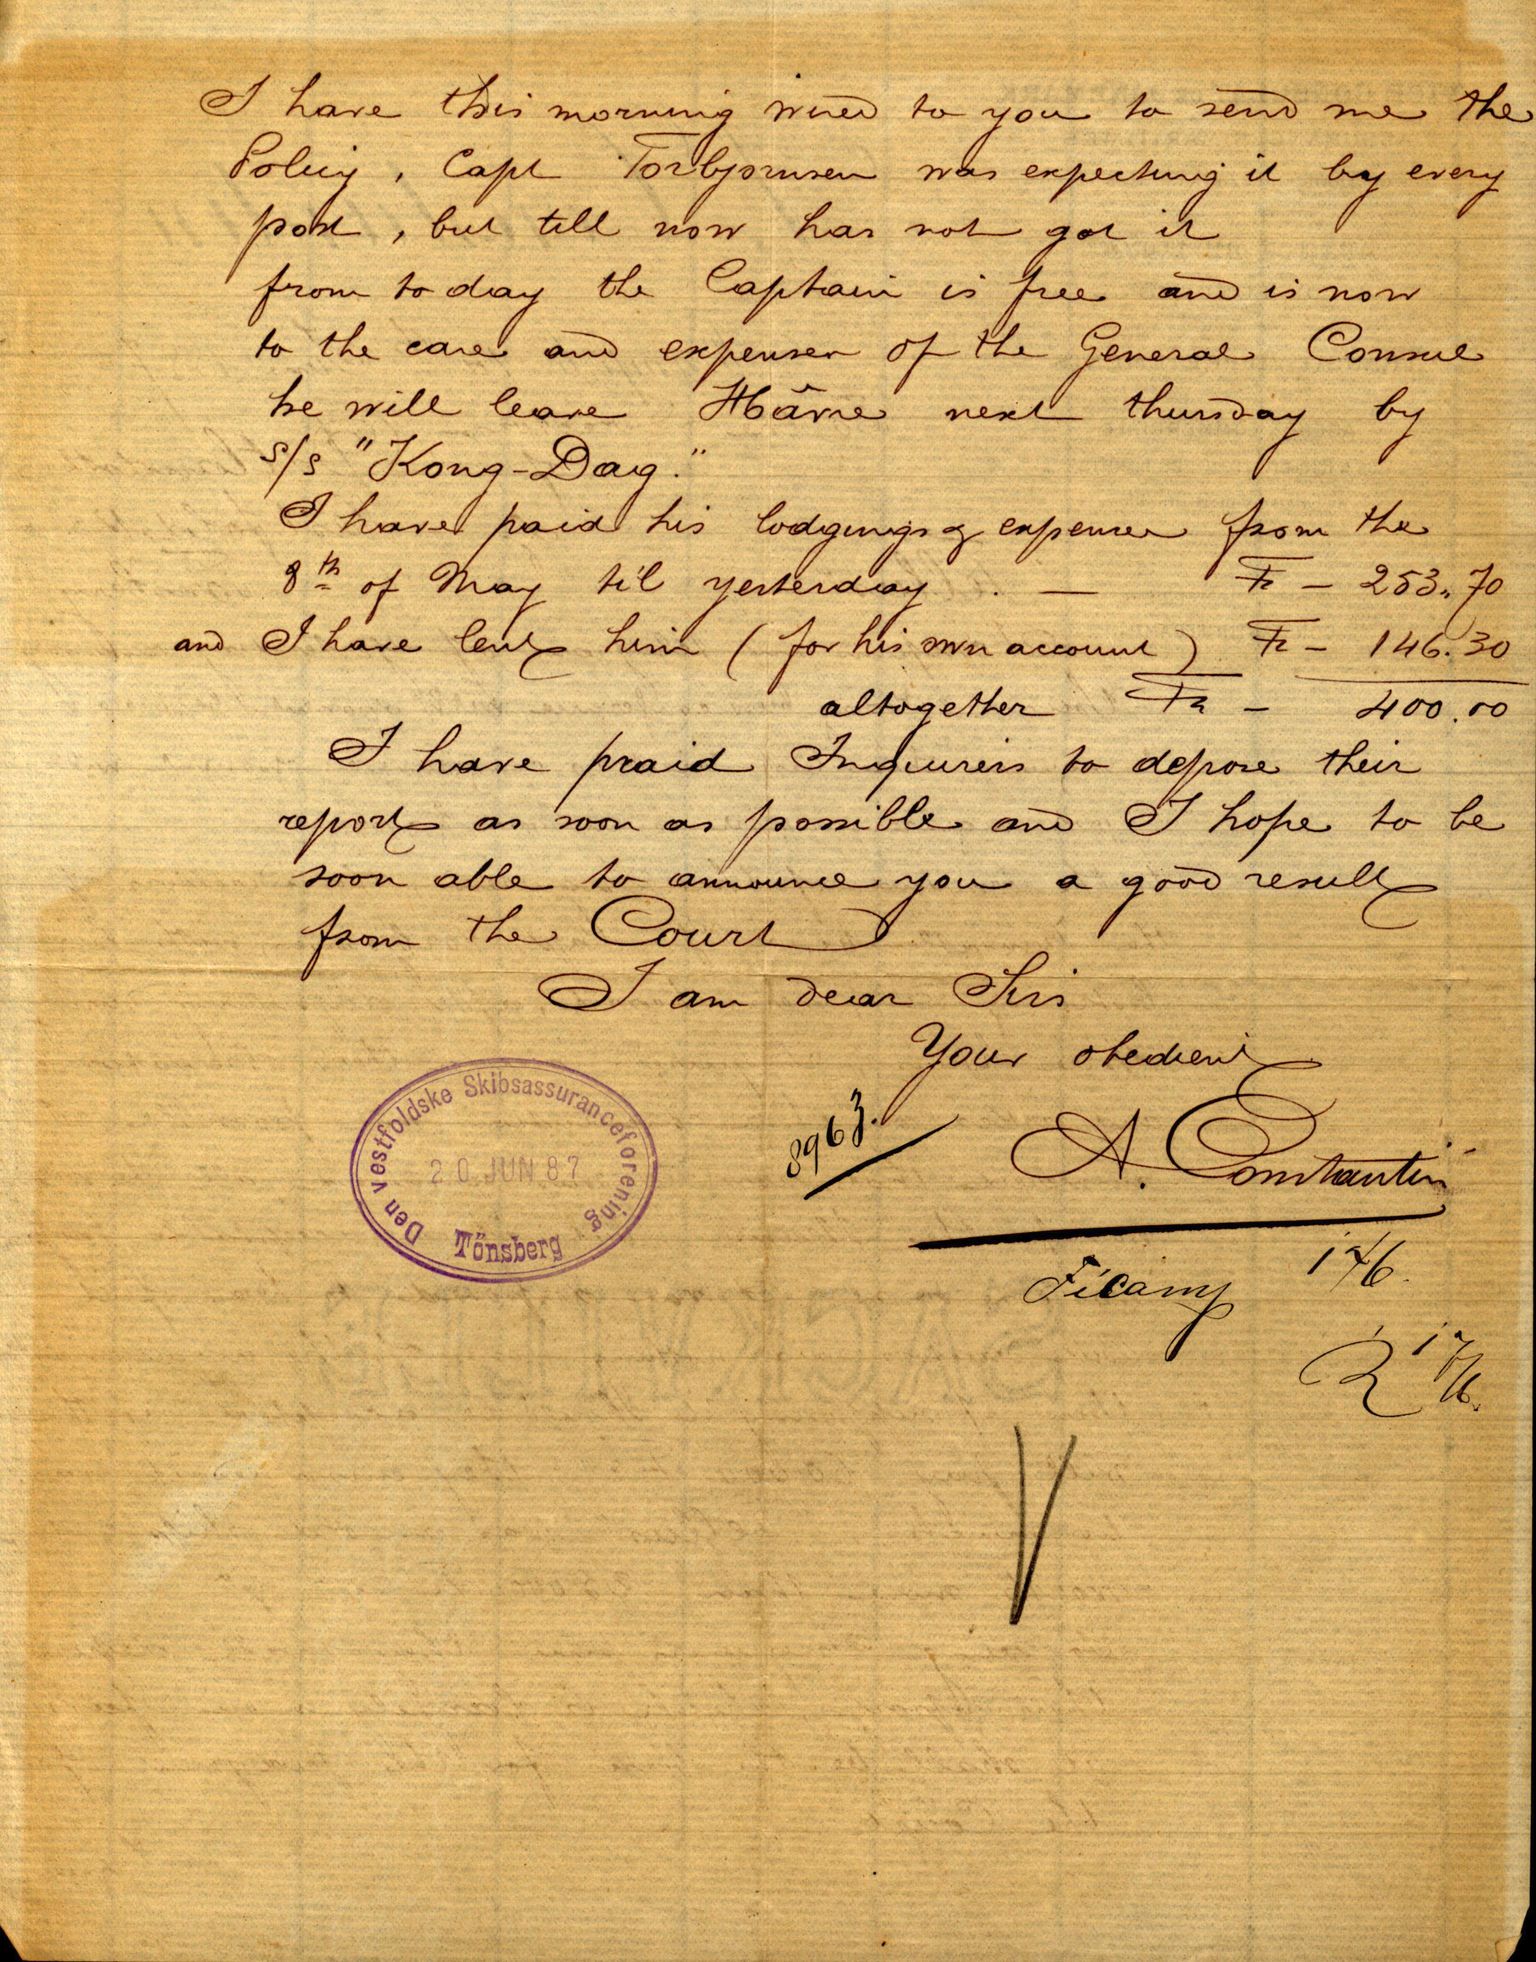 I have this morning wired to you to send me the
Policy, Capt Torbjornsen was expecting it by every
post, but till now has not got it
from to day the Captain is free and is now
to the care and expenses of the General Consul
he will leave Hâvre next thursday by
s/s "Kong-Dag."
I have paid his lodgings & expenses from the
8th of May til yesterday . — Fr – 253,,70
and I have lent him (for his own account) Fr – 146.30
altogether Fr – 400.00
I have praid Inquirers to depose their
report as soon as possible and I hope to be
soon able to announce you a good result
from the Court
I am dear Sirs
Your obedient
8963.
A. Constantin
Den vestfoldske Skibsassuranceforening
20 JUN 87
Tönsberg
Fécamp 14/6.
R 17/6.